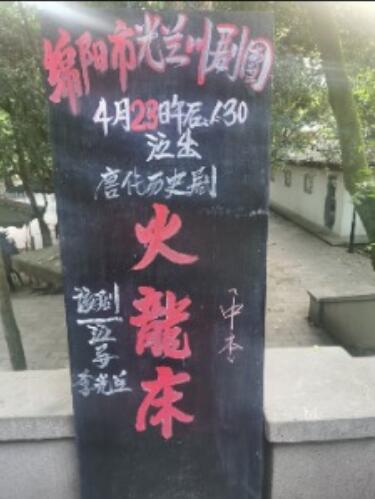 绵阳市光兰川剧团
4月23日午后1:30
泣出
唐代历史剧
火龍床
中本
该剧
江导
李光兰